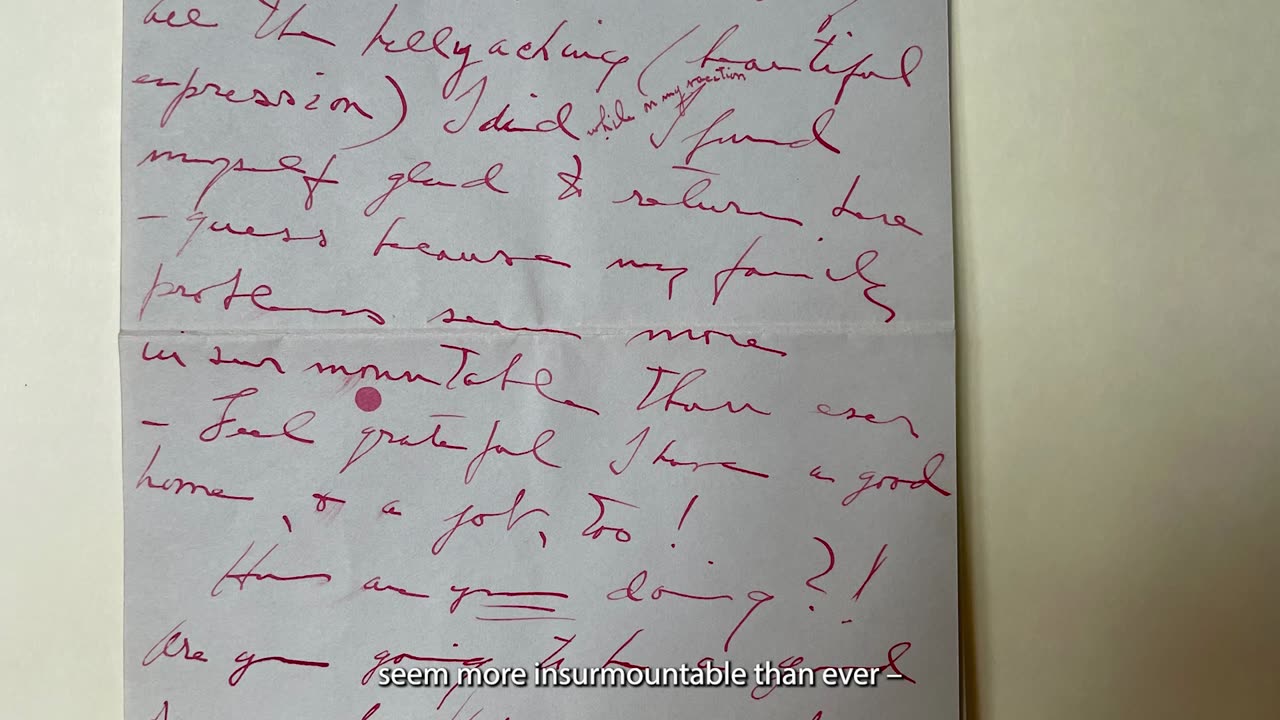 all the bellyaching (beautiful
expression) I did while on my vacation I found
myself glad to return here
– guess because my family
problems seem more
insurmountable than ever
– Feel grateful I have a good
home, & a job, too!
How are you doing?!
Are you going to be a good
seem more insurmountable than ever –